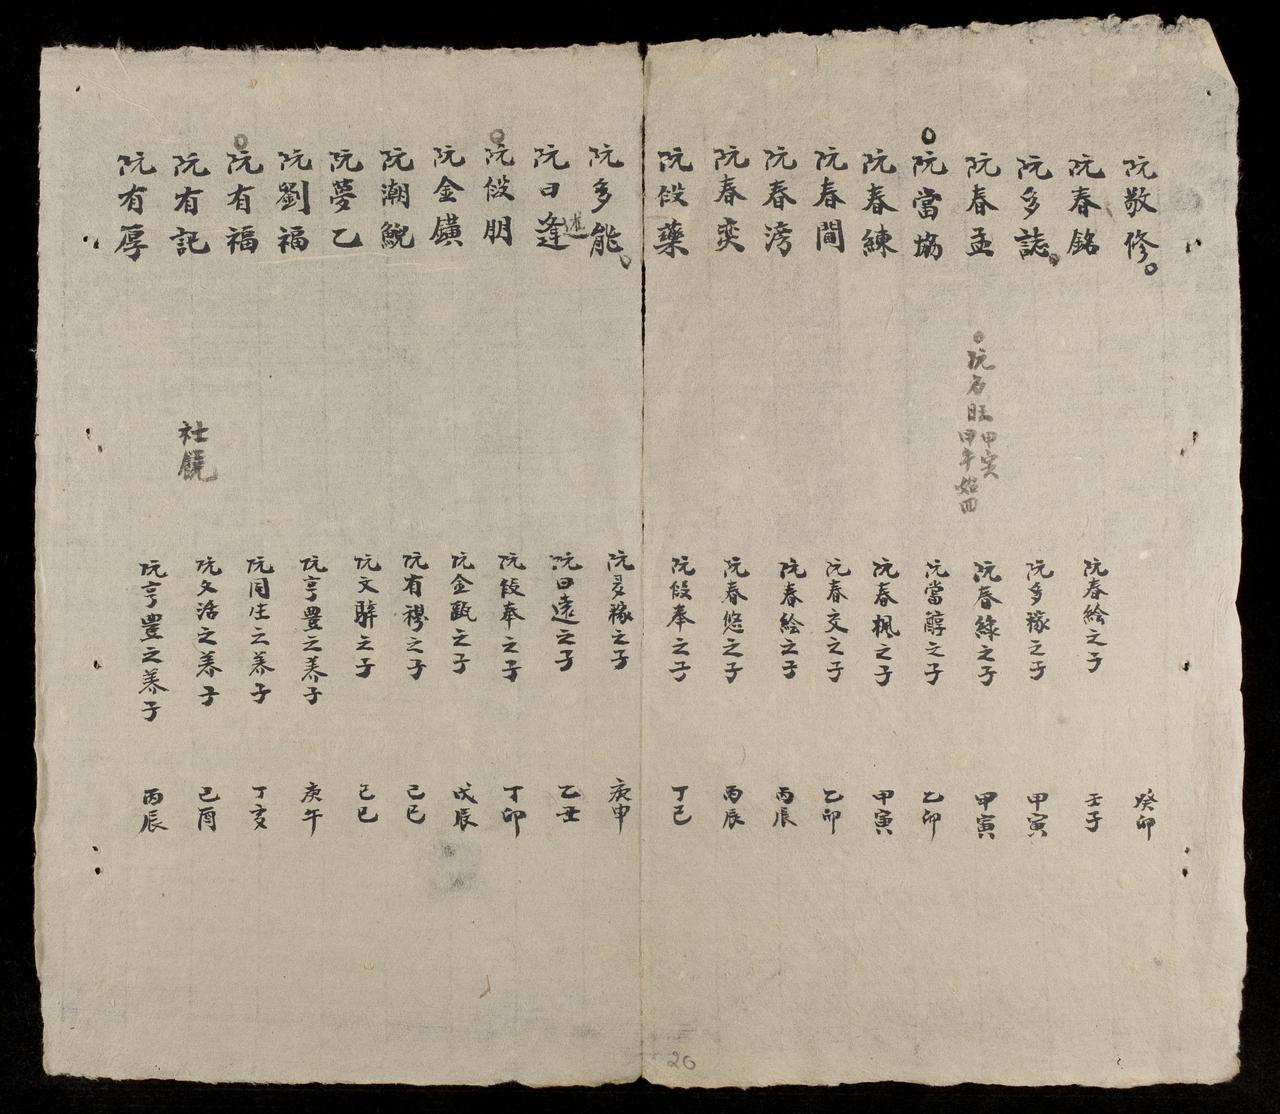 阮敬修 癸卯
阮春銘 阮春絵之子 壬子
阮多誌 阮多稼之子 甲寅
阮春孟 阮春綠之子 甲寅
阮名旺 甲寅 甲午始四
阮當協 阮當醇之子 乙卯
阮春練 阮春楓之子 甲寅
阮春間 阮春交之子 乙卯
阮春滂 阮春絵之子 丙辰
阮春奕 阮春悠之子 丙辰
阮伇藥 阮伇奉之子 丁巳
阮多能 阮多稼之子 庚申
阮曰逢 阮曰遠之子 乙丑
阮伇朋 阮伇奉之子 丁卯
阮金鐄 阮金甌之子 戊辰
阮潮 阮有穆之子 己巳
阮夢乙 阮文騂之子 己巳
阮劉福 阮亨豊之养子 庚午
阮有福 阮同生之养子 丁亥
阮有記 社饒 阮文活之养子 己酉
阮有厚 阮亨豊之养子 丙辰
20